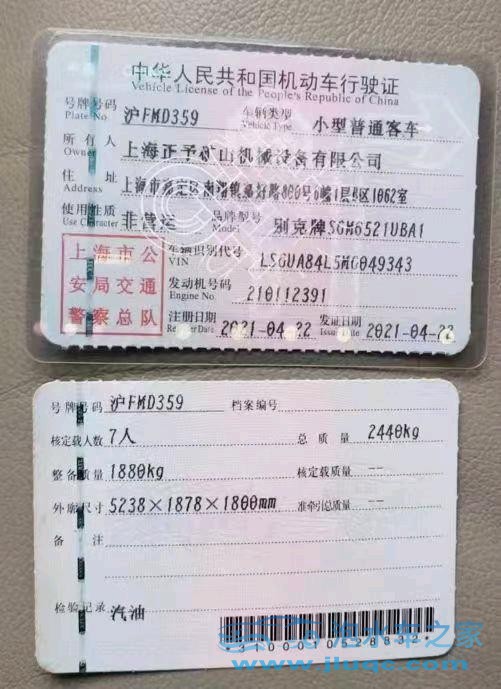 中华人民共和国机动车行驶证
Vehicle License of the People's Republic of China
号牌号码 沪FMD359 车辆类型 小型普通客车
Plate No. Vehicle Type
所有人 上海正予矿山机械设备有限公司
Owner
住址 上海市嘉定区南翔镇 800号6幢1层4区1062室
Address
使用性质 非营运 品牌型号 别克牌SGM6521UBA1
Use Character
上海市公 车辆识别代号 LSGUA84L5MG049343
VIN
安局交通 发动机号码 210112391
Engine No.
警察总队 注册日期 2021-04-22 发证日期 2021-04-22
Register Date Issue Date
号牌号码 沪FMD359 档案编号
核定载人数 7人 总质量 2440kg
整备质量 1880kg 核定载质量 --
外廓尺寸 5238×1878×1800mm 准牵引总质量 --
备注
检验记录 汽油
水车之家